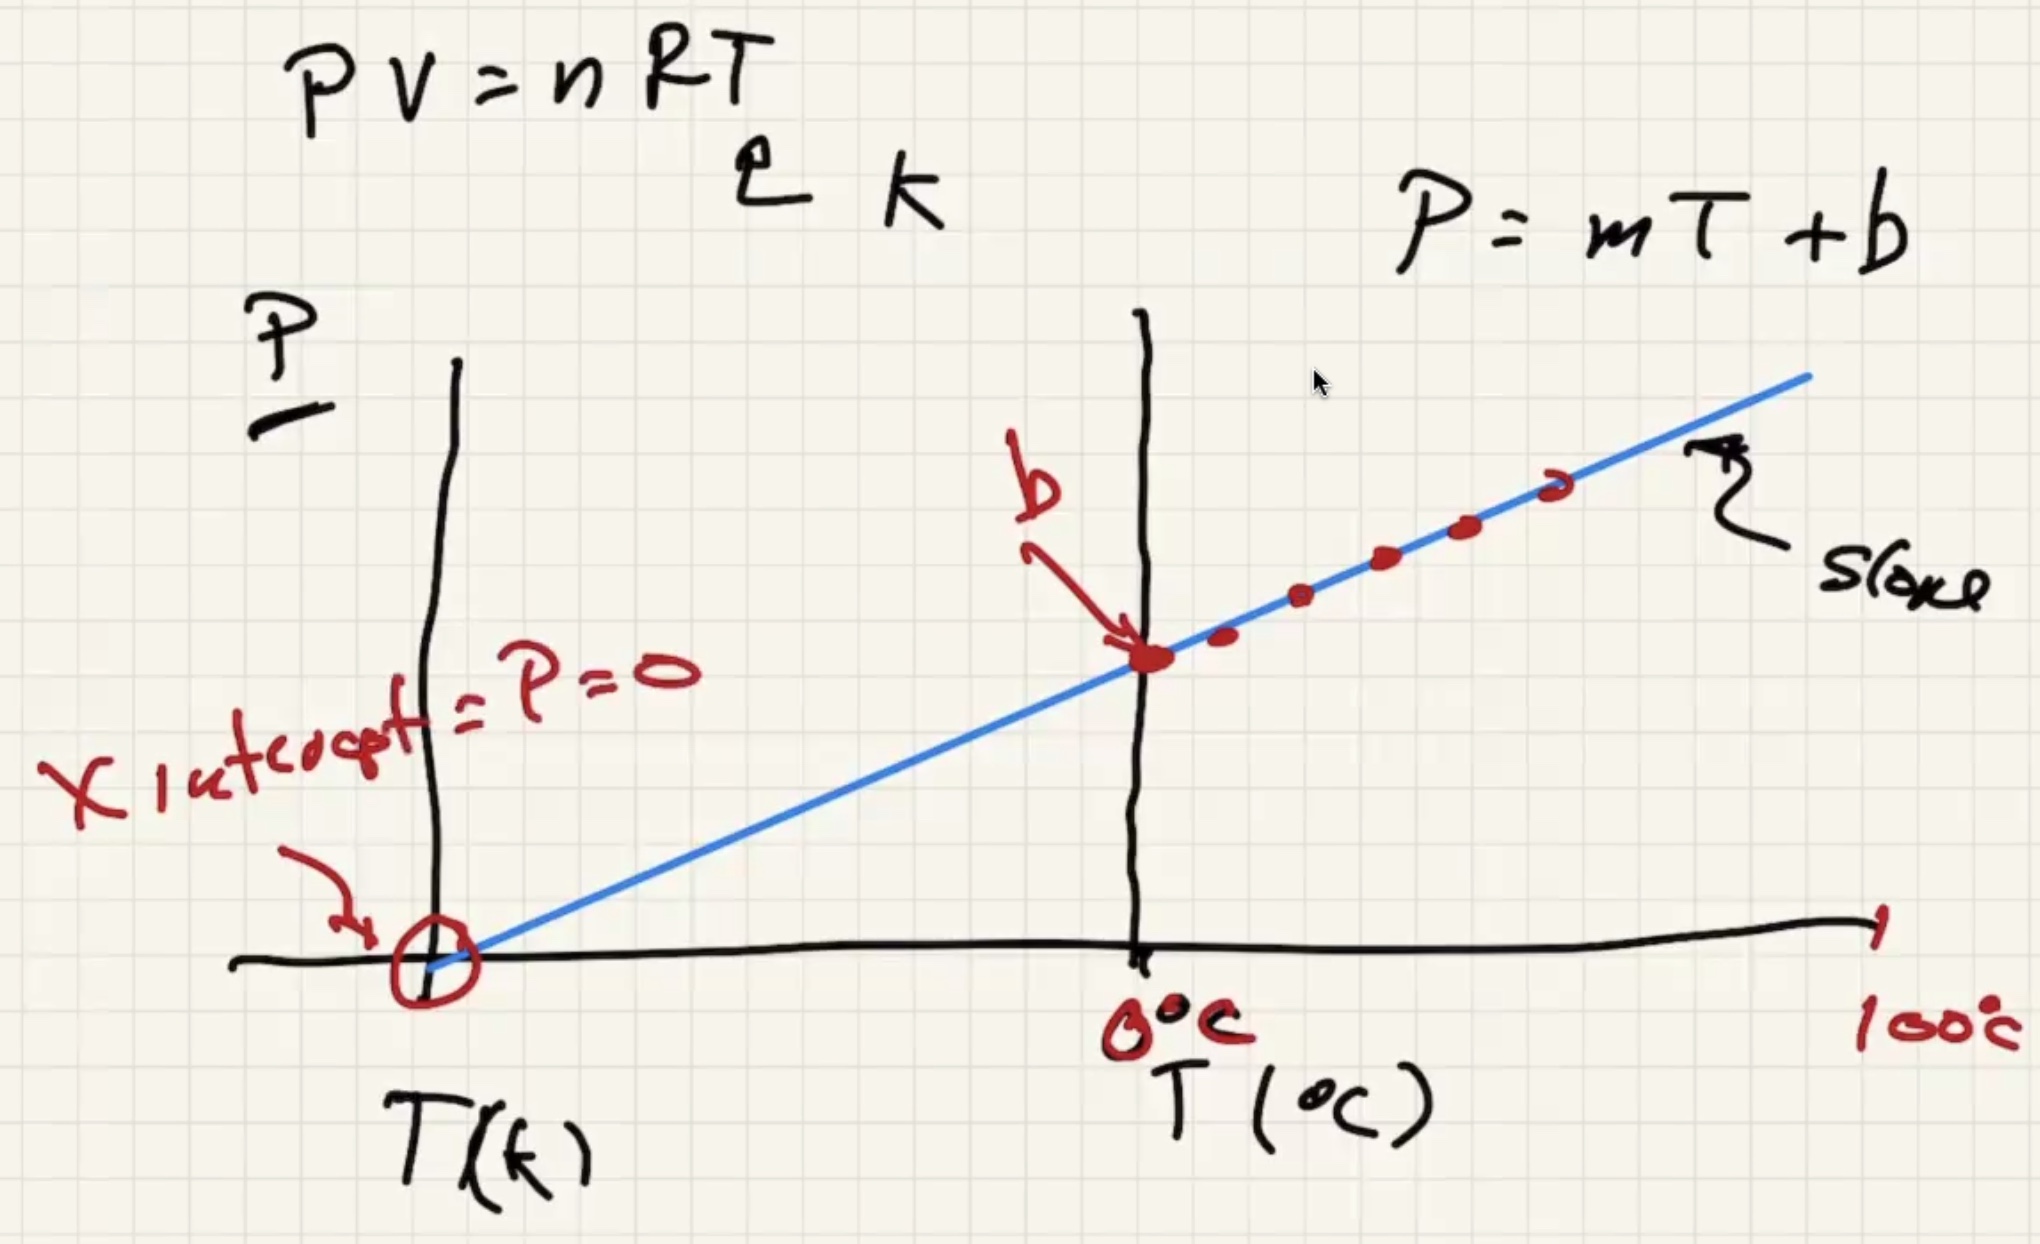 PV = nRT
K
P = mT + b
P
b
slope
X intercept = P = 0
0°C
100°C
T(°C)
T(K)